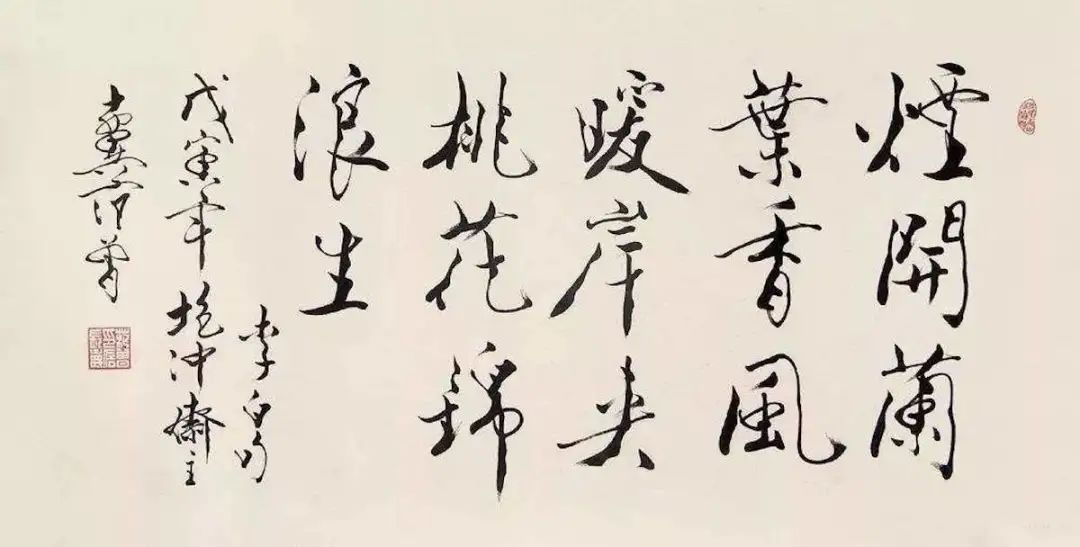 煙開蘭
葉香風
暖岸夾
桃花錦
浪生
李白句
戊寅年抱冲齋主
十翼范曾